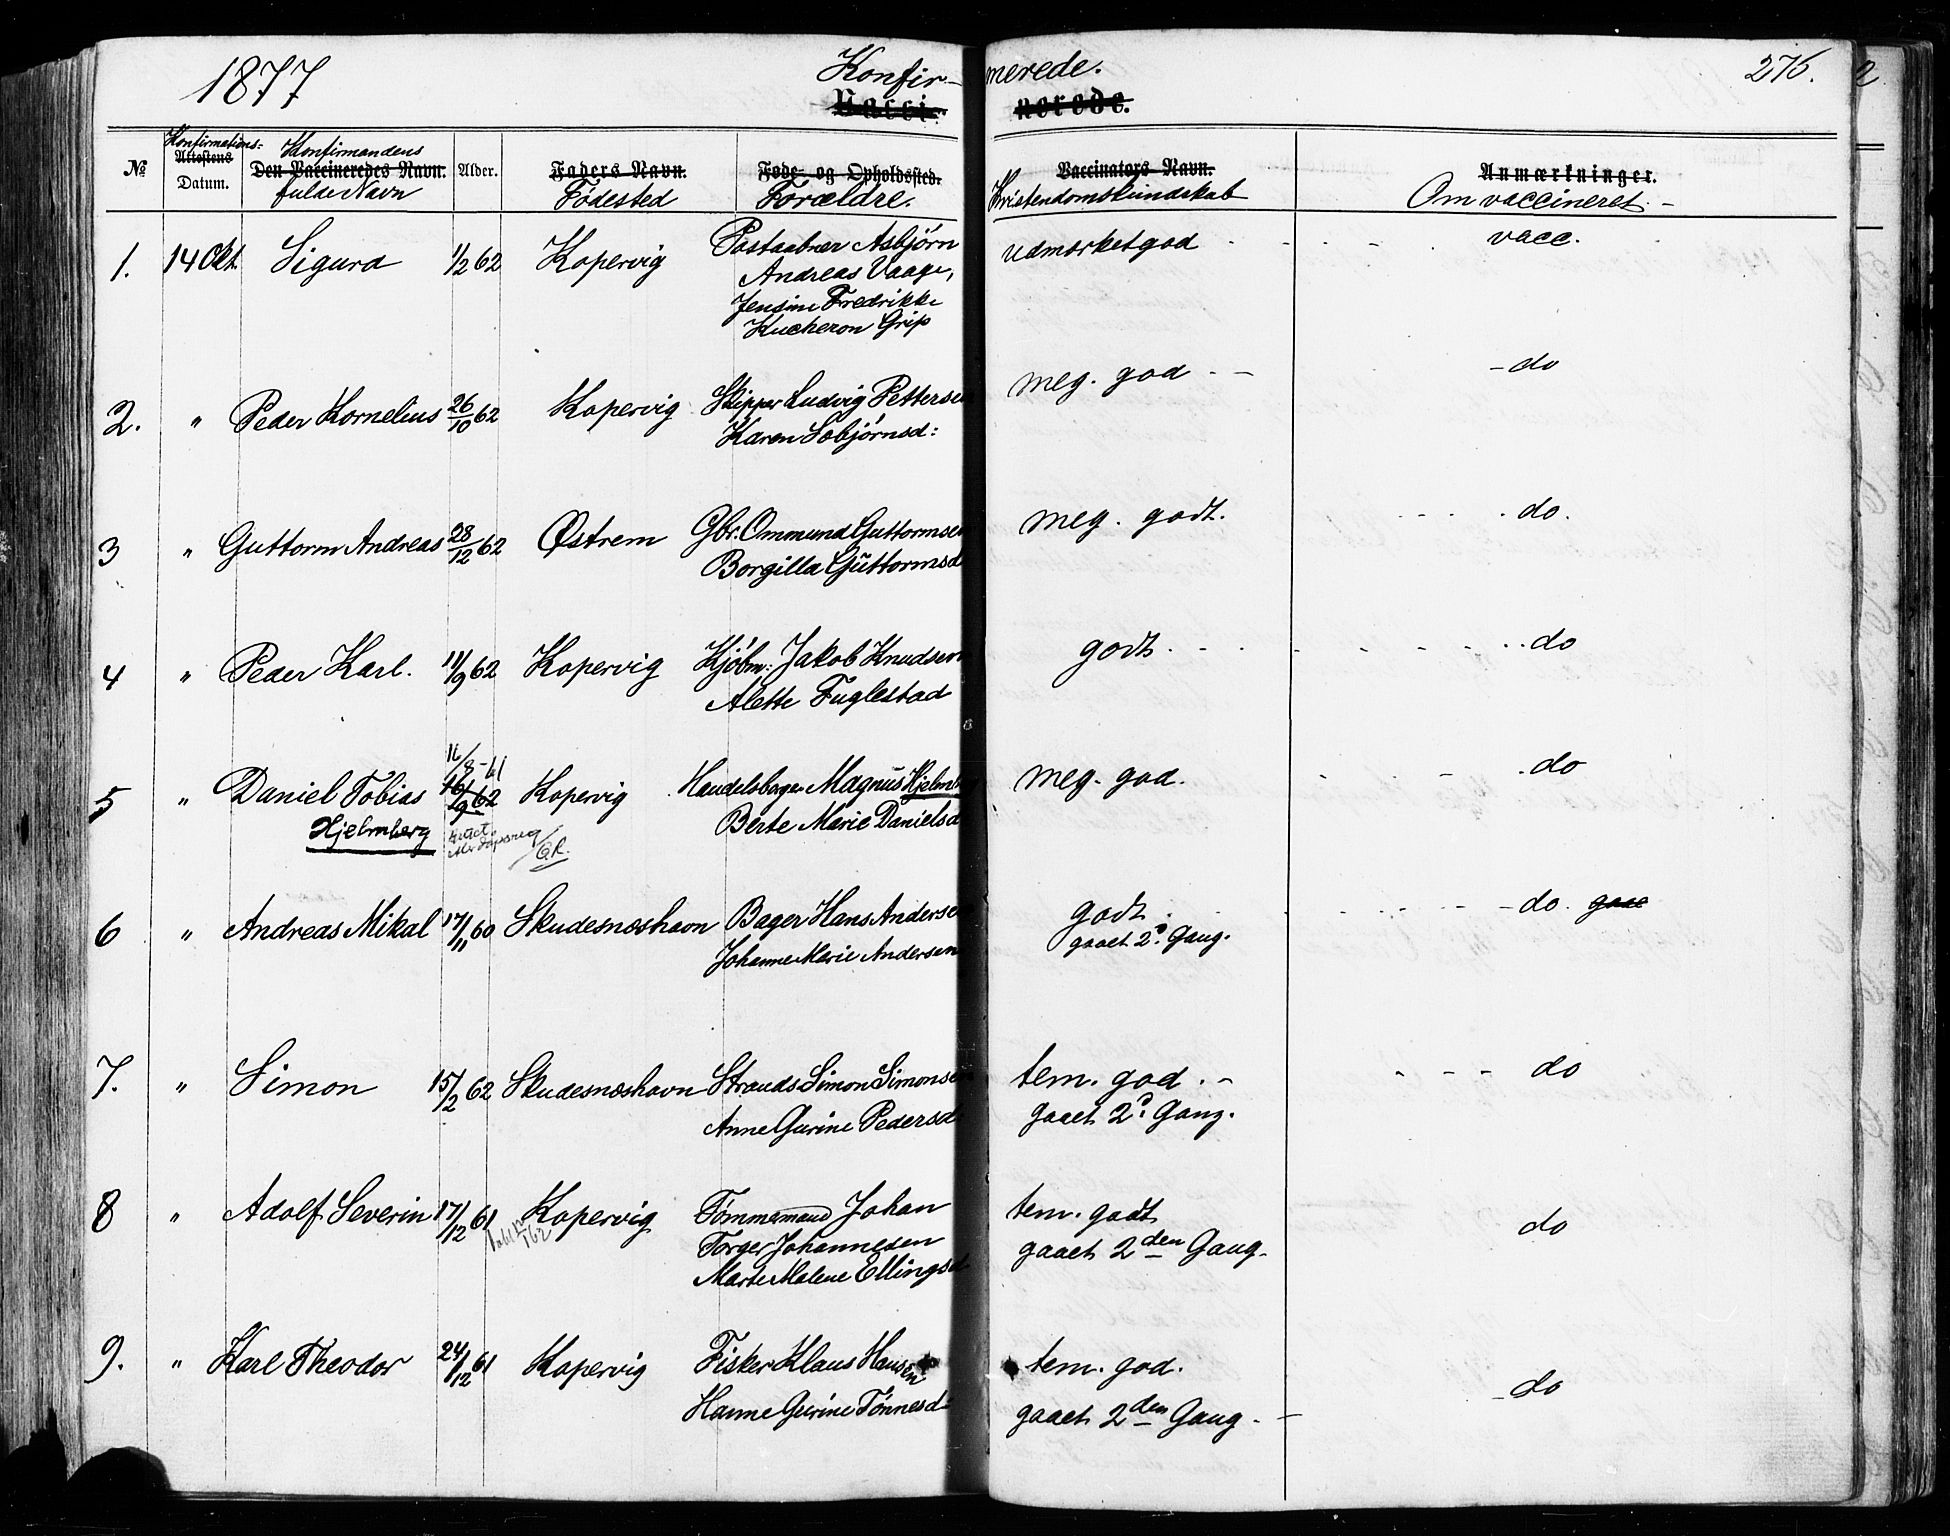 1877
Konfir- merede.
276.
Vacci- nerede.
No
Konfirmations-
Attestens
Datum.
Konfirmandens
Den Vaccineredes Navn.
fulde Navn
Alder.
Faders Navn.
Fødested
Føde- og Opholdssted.
Forældre.
Vaccinators Navn.
Kristendomskundskab
Anmærkninger.
Om vaccineret. -
1. 14 Okt. Sigurd 1/2 62 Kopervig Postaabner Asbjørn udmærket god - - - - vacc.
Andreas Vaage,
Jensine Fredrikke
Kucheron Grip
2. " Peder Kornelius 26/10 62 Kopervig Skipper Ludvig Pettersen meg. god - - - do
Karen Sebjørnsd:
3 " Guttorm Andreas 28/12 62 Østrem Gbr. Ommund Guttormsen meg. godt. - - - do.
Borgilla Guttormsd
4 " Peder Karl. 11/9 62 Kopervig Kjøbm: Jakob Knudsen godt. - - - - do
Alette Fuglestad
11/8-61
5 " Daniel Tobias 16/9 62 Kopervig Handelsborger Magnus Hjelmberg meg. god. - - - do
Hjelmberg Berte Marie Danielsd
Rettet
/G.R.
6 " Andreas Mikal 17/11 60 Skudesneshavn Bager Hans Andersen godt. - - - - do. gaae
Johanne Marie Andersen gaaet 2d. Gang.
7. " Simon 15/2 62 Skudesneshavn Strands. Simon Simonsen tem. god. - - - - do
Anne Gurine Pedersd gaaet 2d. Gang.
8 " Adolf Severin 17/12 61 Kopervig Tømmermand Johan tem. godt do
Torger Johannesen gaaet 2den Gang.
Marte Malene Ellingsd
9. " Karl Theodor 24/12 61 Kopervig Fisker Klaus Hansen tem. god. - do
Hanne Gurine Tønnesd gaaet 2den Gang. -